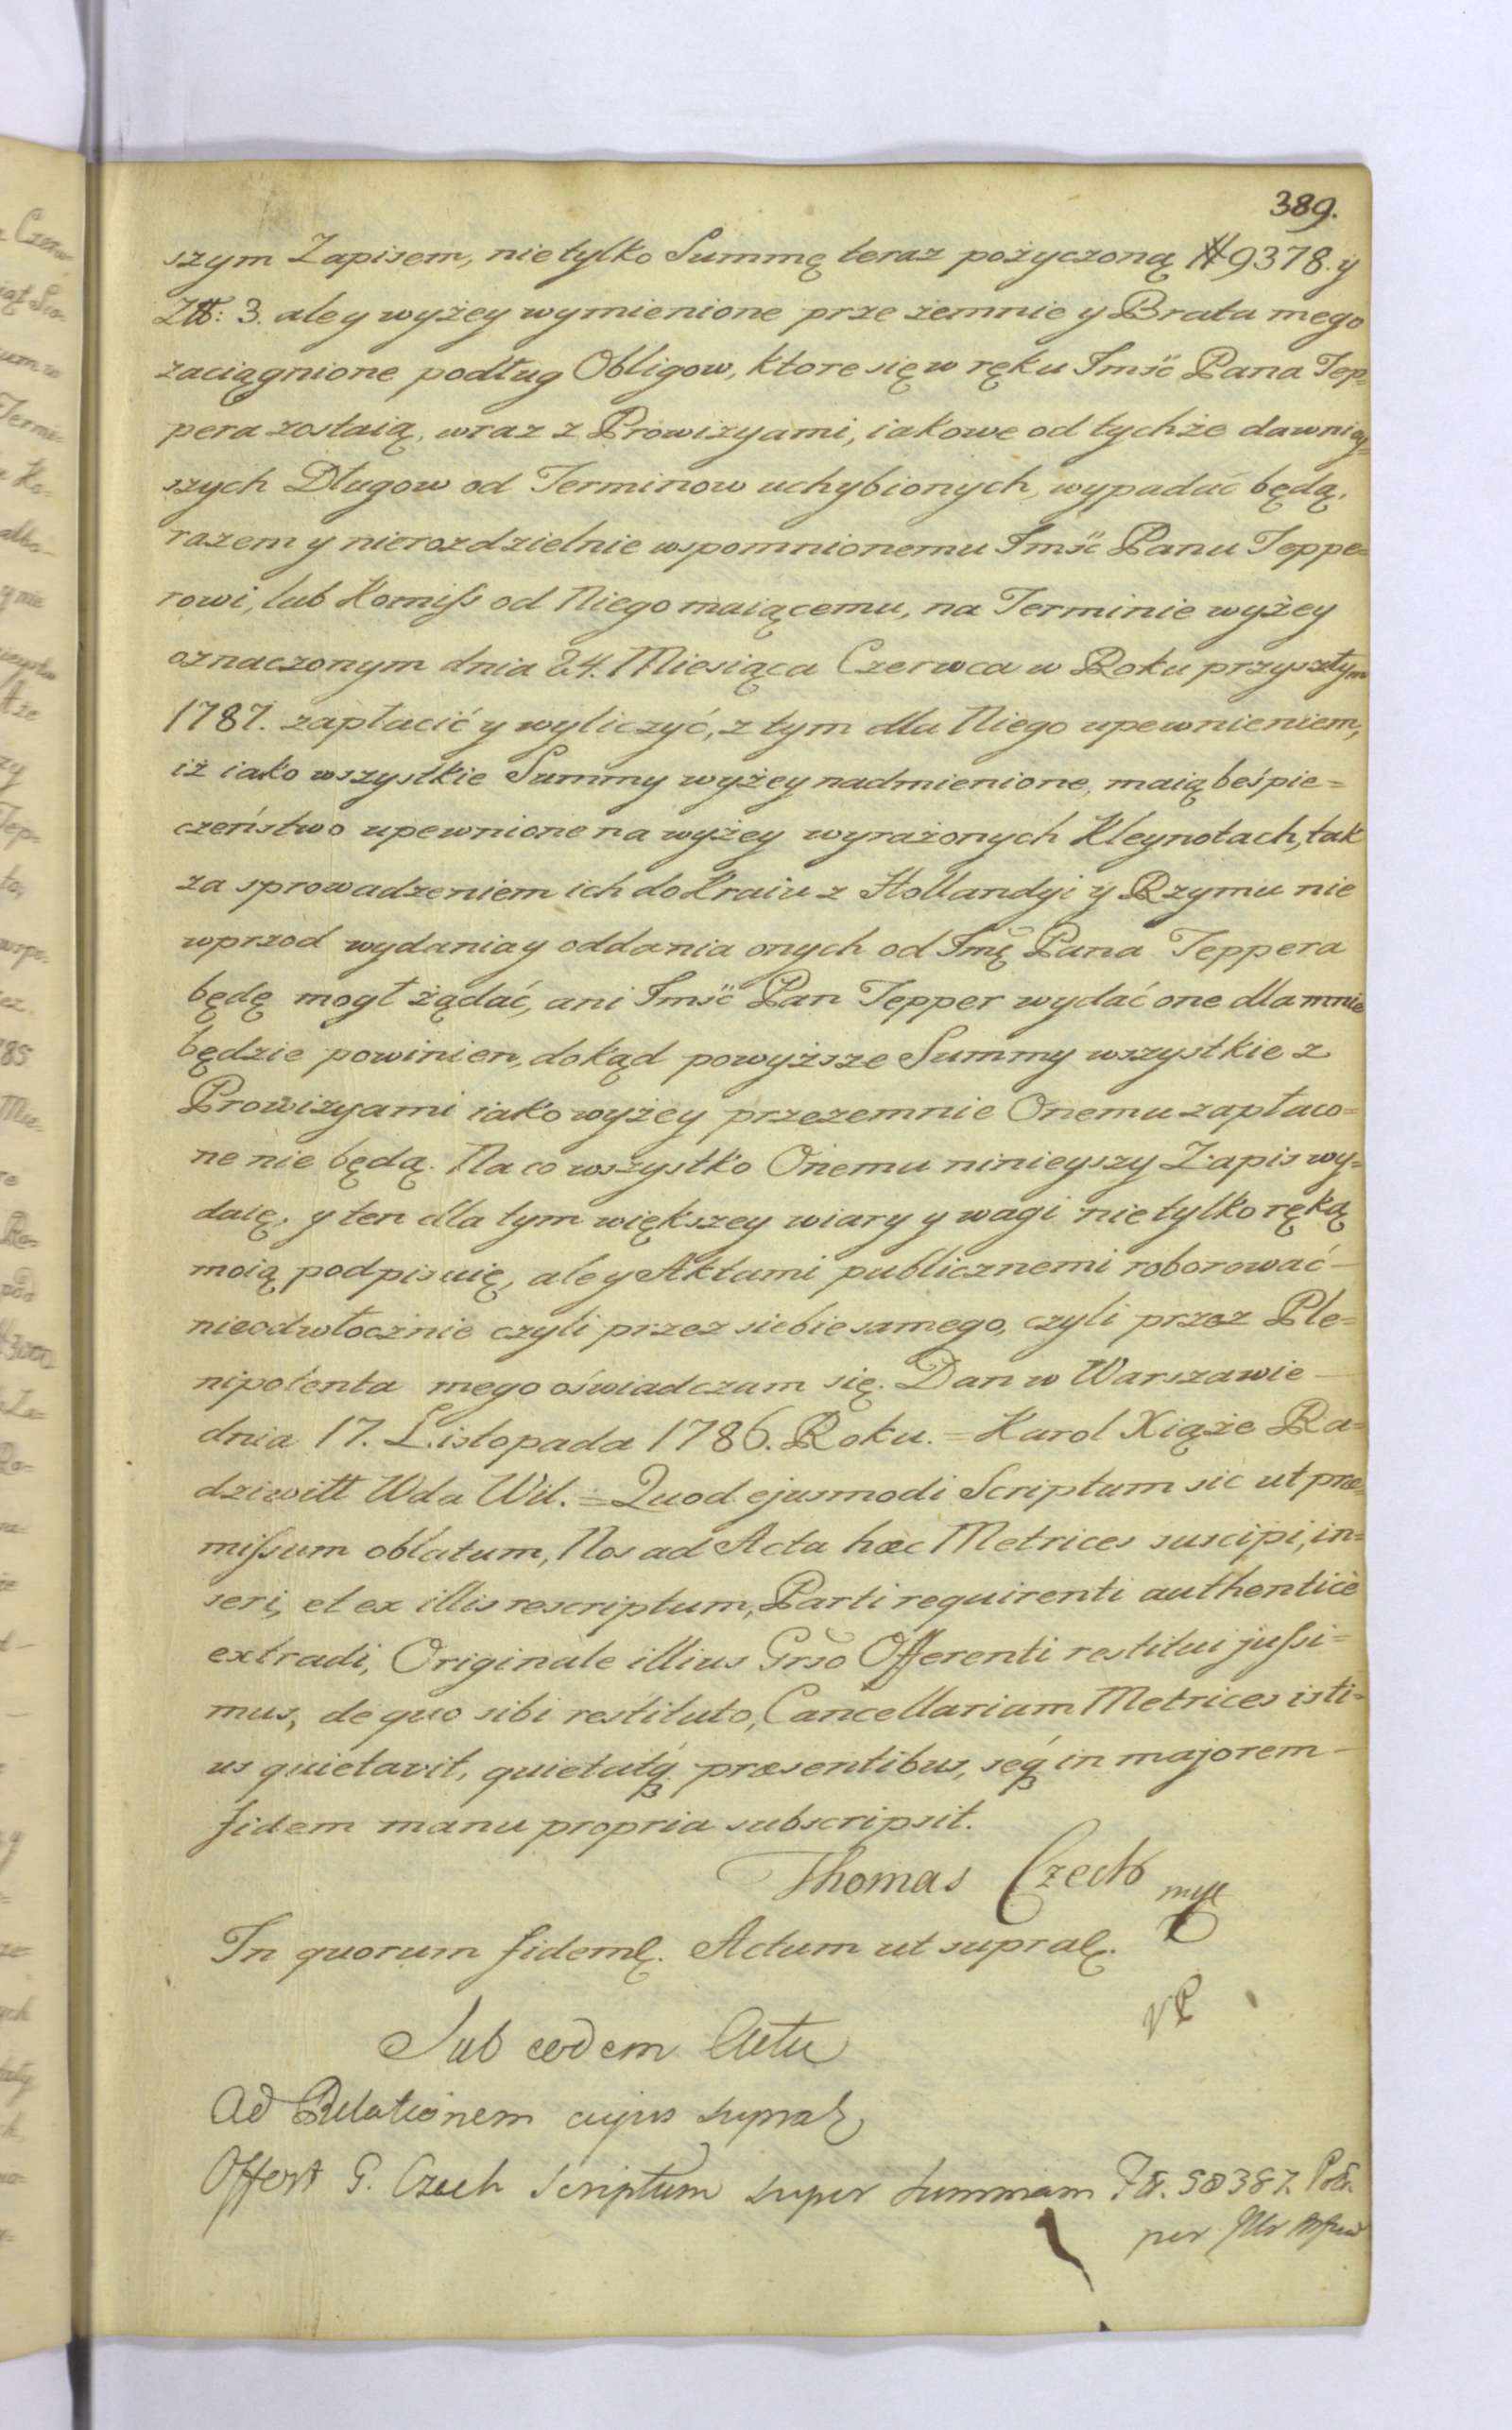 389.
szym Zapisem, nie tylko Summę teraz pożyczoną # 9378. y
Złł: 3. ale y wyżey wymienione prze zemnie y Brata mego
zaciągnione podług Obligow, ktore się w ręku Imść Pana Tep=
pera zostaią, wraz z Prowizyami, iakowe od tychże dawniey=
szych Długow od Terminow uchybionych, wypadać będą,
razem y nierozdzielnie wspomnionemu Imść Panu Teppe=
rowi, lub Komiss od Niego maiącemu, na Terminie wyżey
oznaczonym dnia 24. Miesiąca Czerwca w Roku przyszłym
1787. zapłacić y wyliczyć, z tym dla Niego upewnieniem,
iż iako wszystkie Summy wyżey nadmienione, maią beśpie=
czeństwo upewnione na wyżey wyrażonych Kleynotach, tak
za sprowadzeniem ich do Kraiu z Hollandyi y Rzymu nie
wprzod wydania y oddania onych od Imę Pana Teppera
będę mogł żądać, ani Imść Pan Tepper wydać one dla mnie
będzie powinien, dokąd powyższe Summy wszystkie z
Prowizyami iako wyżey przezemnie Onemu zapłaco=
ne nie będą. Na co wszystko Onemu ninieyszy Zapis wy=
daię, y ten dla tym większey wiary y wagi nie tylko ręką
moią podpisuię, ale y Aktami publicznemi roborować
nieodwłocznie czyli przez siebie samego, czyli przez Ple=
nipotenta mego oświadczam się. Dan w Warszawie
dnia 17. Listopada 1786. Roku. = Karol Xiąże Ra=
dziwiłł Wda Wil. = Quod ejusmodi Scriptum sic ut præ=
missum oblatum, Nos ad Acta hæc Metrices suscipi, in=
seri, et ex illis rescriptum, Parti requirenti authenticè
extradi, Originale illius Grso Offerenti restitui jussi=
mus, de quo sibi restituto, Cancellariam Metrices isti=
us quietavit, quietatq́ præsentibus, seq́ in majorem
fidem manu propria subscripsit.
Thomas Czech mpp
In quorum fidem. Actum ut supra.
Sub eodem Actu
Ad Relationem cujus supra
Offert G. Czech Scriptum super summam 58387. Pol.
per